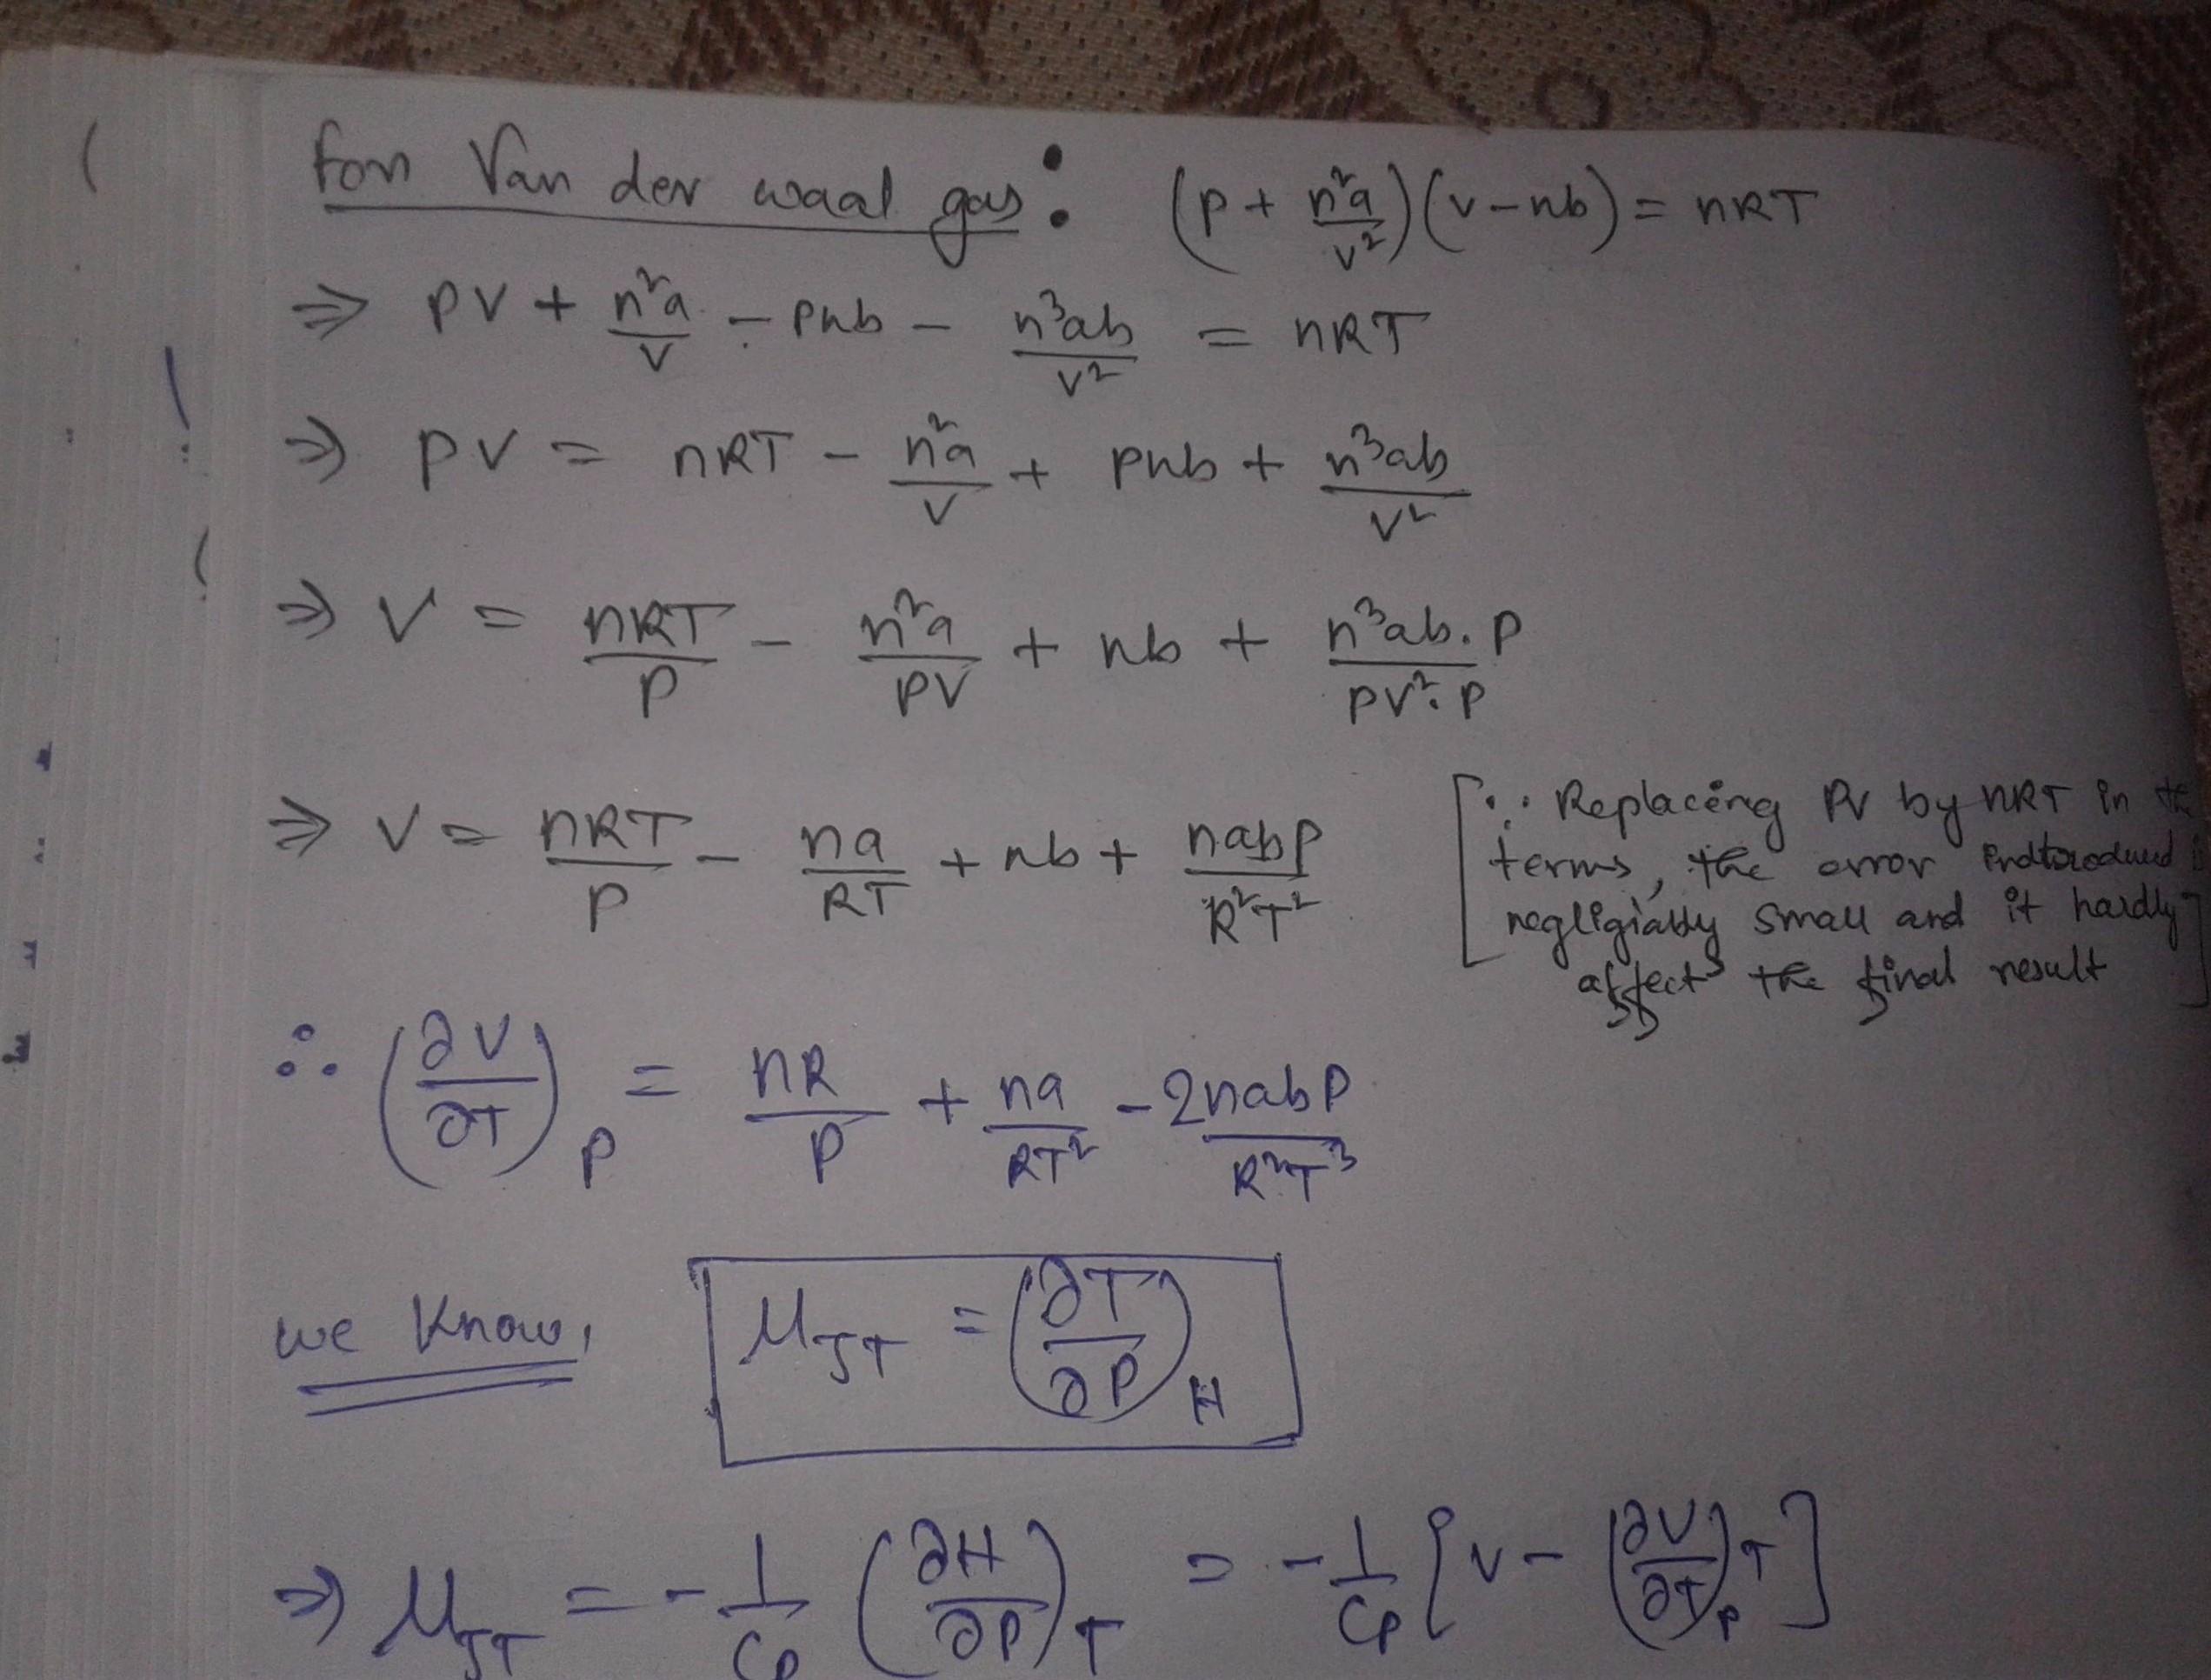 for Van der waal gas: (P + n²a/V²)(V-nb) = nRT
⇒ PV + n²a/V - Pnb - n³ab/V² = nRT
⇒ PV = nRT - n²a/V + Pnb + n³ab/V²
⇒ V = nRT/P - n²a/PV + nb + n³ab.P/PV².P
⇒ V = nRT/P - na/RT + nb + nabP/R²T²
[∵ Replacing PV by nRT in
terms, the error indtroduced
negligiably small and it hardly
affects the final result]
∴ (∂V/∂T)_P = nR/P + na/RT² - 2nabP/R²T³
we know, μ_JT = (∂T/∂P)_H
⇒ μ_JT = -1/Cp (∂H/∂P)_T = -1/Cp [V - (∂V/∂T)_P T]